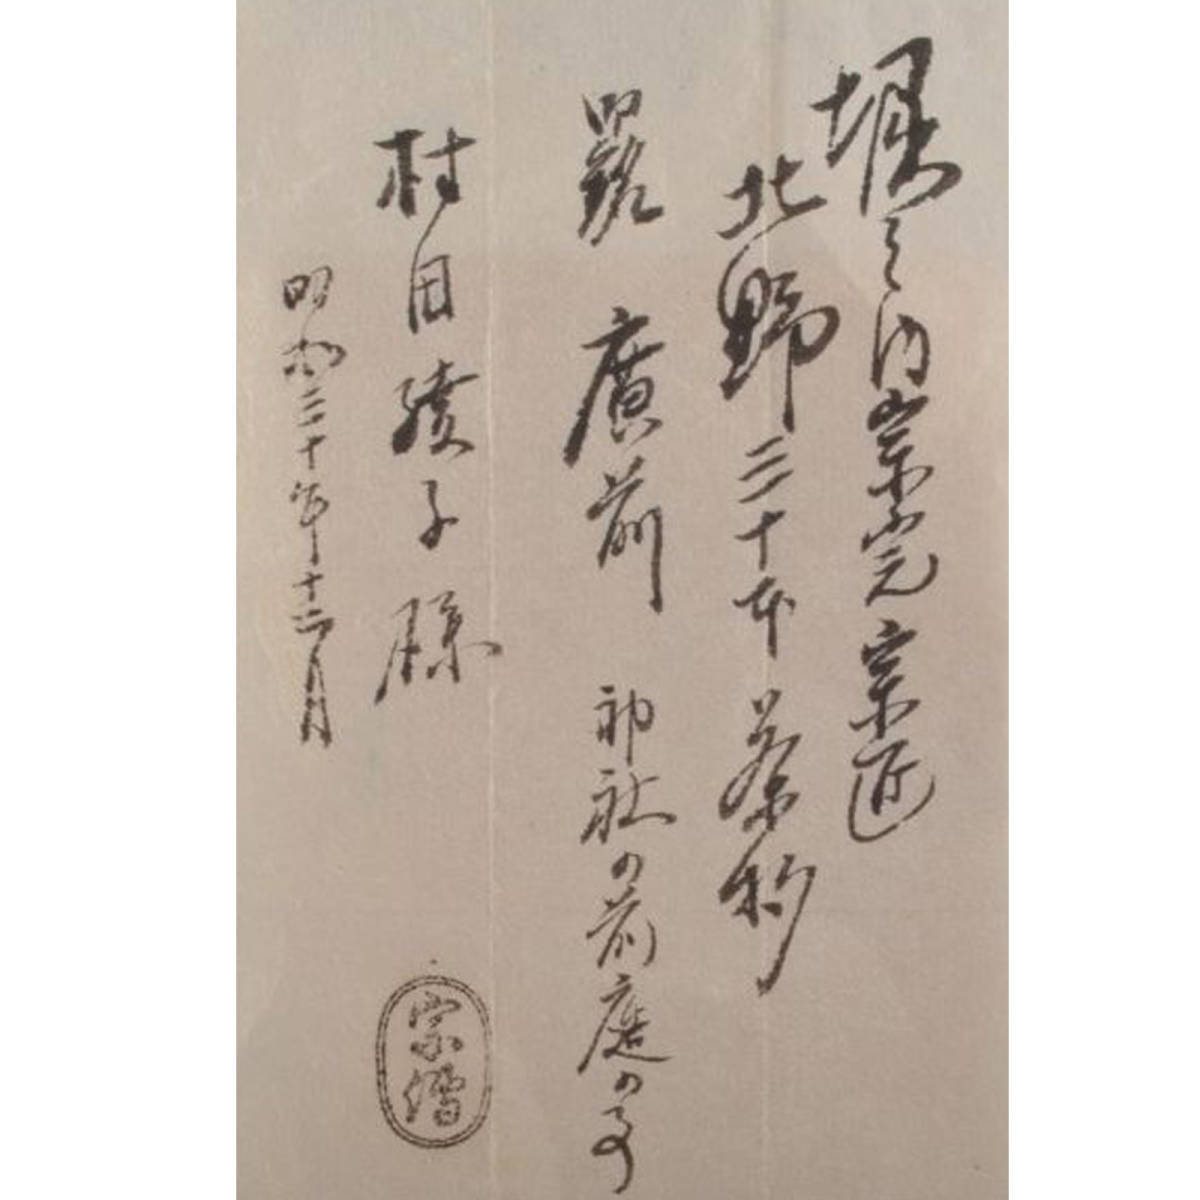 堀之内宗完宗匠
北野三十本茶杓
御銘 廣前 神社の前庭の事
村田綾子様
昭和三十年十二月
宗僊